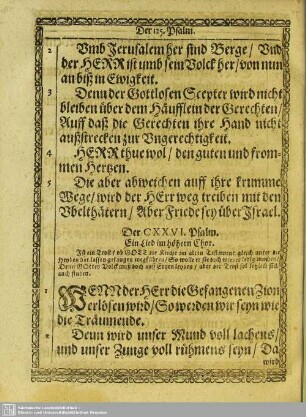 Der 125. Psalm.
2 Umb Jerusalem her sind Berge / Und
der HERR ist umb sein Volck her / von nun
an biß in Ewigkeit.
3 Denn der Gottlosen Scepter wird nicht
bleiben über dem Häufflein der Gerechten /
Auff daß die Gerechten ihre Hand nicht
außstrecken zur Ungerechtigkeit.
4 HERR thue wol / den guten und from-
men Hertzen.
5 Die aber abweichen auff ihre krumme
Wege / wird der HErr weg treiben mit den
Ubelthätern / Aber Friede sey über Israel.
Der CXXVI. Psalm.
Ein Lied im höhern Chor.
1 WENN der HErr die Gefangenen Zion
erlösen wird / So werden wir seyn wie
die Träumende.
2 Denn wird unser Mund voll lachens /
und unser Zunge voll rühmens seyn / Da
wird